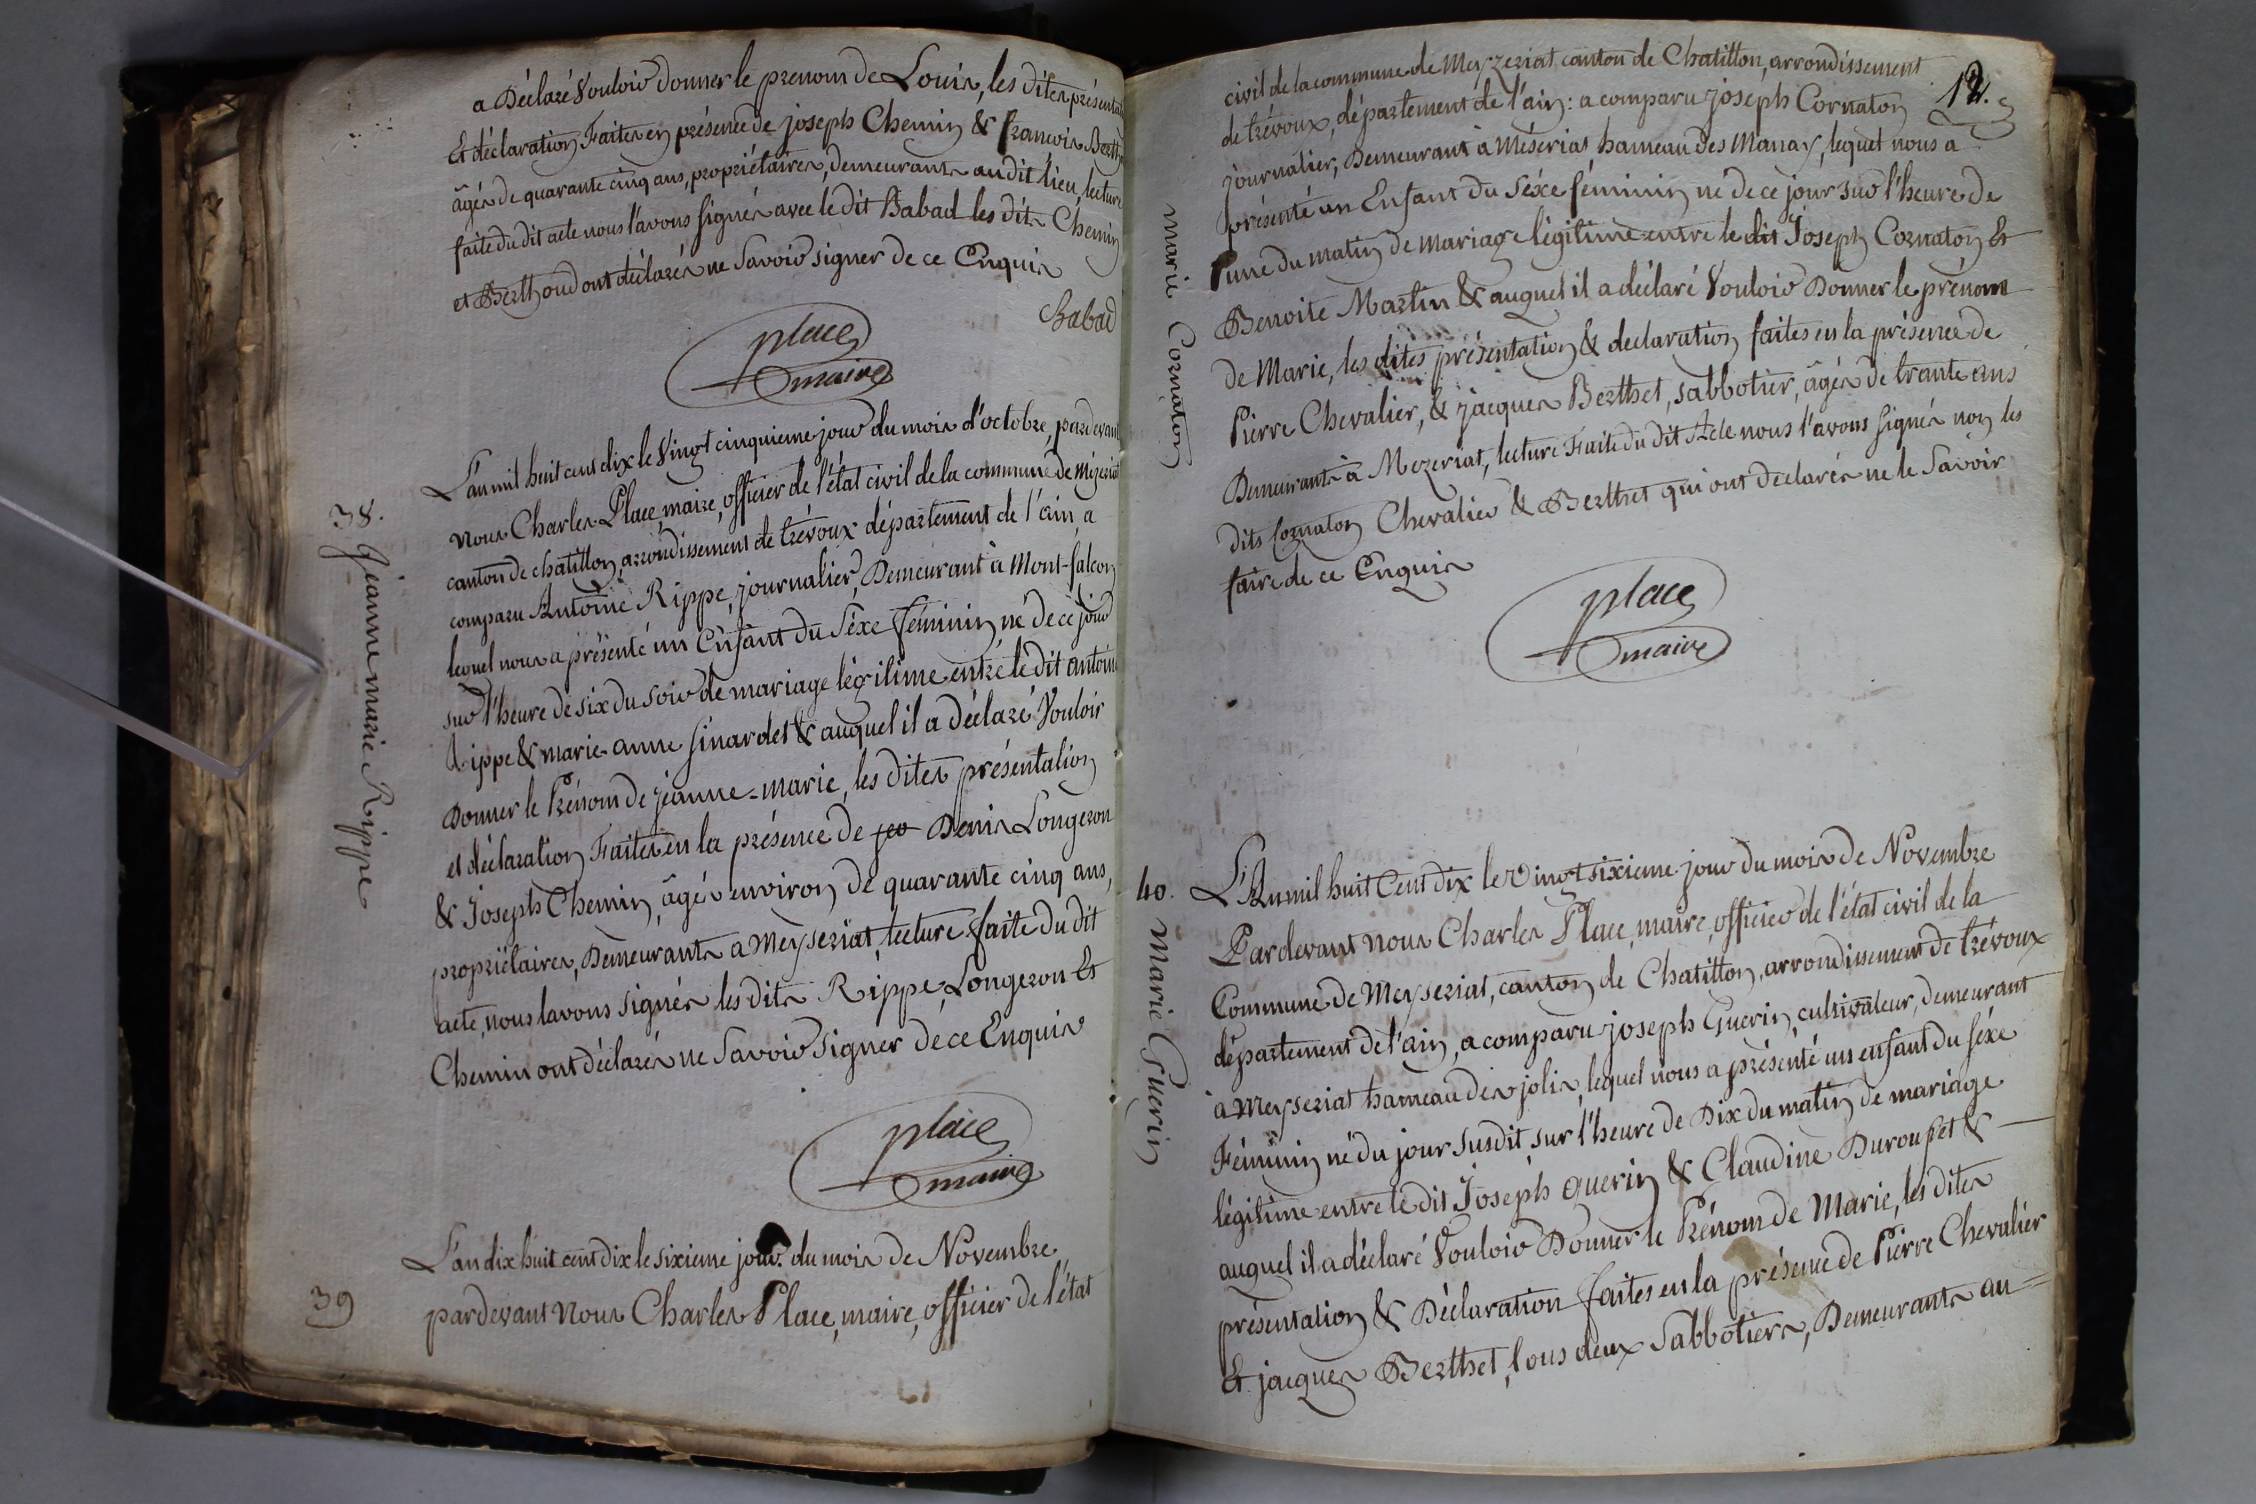 a Déclaré Vouloir donner le prenom de Louis, les dites présentat
Et déclaration Faites en présence de joseph Chemin & francois Berth
âgés de quarante cinq ans, propriétaires, demeurants au dit lieu, lecture
faite du dit acte nous l'avons signés avec lé dit Babad les dits Chemin
et Berthoud ont déclarés ne Savoir signer de ce Enquis
Babad
place
maire
38. Jeanne marie Rippe
L'an mil huit cent dix le Vingt cinquieme jour du mois d'octobre, pardevant
nous Charles Place, maire, officier de l'état civil de la commune de Mézeriat
canton de chatillon, arrondissement de trévoux département de l'ain a
comparu Antoine Rippe, journalier, Demeurant à Mont-falcon
lequel nous a présenté un Enfant du Séxe féminin né de ce jour
sur l'heure de six du soir de mariage légitime entré le dit antoine
Rippe & marie anne sinardet & auquel il a déclaré Vouloir
Donner le Prénom de jeanne-marie, les dites présentation
et déclaration Faites en la présence de Denis Longeron
& Joseph Chemin, âgés environ de quarante cinq ans,
propriétaires, Demeurants a Meyseriat, lecture faite du dit
acte, nous lavons signés les dits Rippe, Longeron Et
Chemin ont déclarés ne Savoir signer de ce Enquis
place
maire
39
L'an dix huit cent dix le sixieme jour. du mois de Novembre
pardevant nous Charles Place, maire, officier de l'état
12.
civil de la commune de Meyzeriat canton de Chatillon, arrondissement
de trévoux, département de l'ain: a comparu joseph Cornaton
journalier, Demeurant à Méseriat, hameau des Manay, lequel nous a
présenté un Enfant du Séxe féminin né de ce jour sur l'heure de
l'une du matin de mariage légitime entre le dit Joseph Cornaton Et
Benoite Martin & auquel il a déclaré Vouloir Donner le prénom
de Marie, les dites présentation & declaration faites en la présence de
Pierre Chevalier, & jacques Berthet, sabbotier, âgés de trante ans
Demeurants à Mezeriat, lecture Faite du dit Acte nous l'avons signés non les
dits Cornaton Chevalier & Berthet qui ont déclarés ne le Savoir
faire de ce Enquis
marie Cornaton
place
maire
40. Marie Guerin
L'An mil huit Cent dix le Vingt sixieme jour du mois de Novembre
Pardevant nous Charles Place, maire, officier de l'état civil de la
Commune de Meyseriat, canton de Chatillon, arrondissement de trévoux
département de l'ain, a comparu joseph Guerin, cultivateur, demeurant
à Meyseriat hameau des jolis, lequel nous a présenté un enfant du séxe
Féminin né du jour susdit, sur l'heure de Dix du matin de mariage
légitime entre le dit Joseph guerin & Claudine Duroupet &
auquel il a déclaré Vouloir Donner le Prénom de Marie, les dites
présentation & Déclaration faites en la présence de Pierre Chevalier
Et jacques Berthet, tous deux Sabbotiers, Demeurants au=